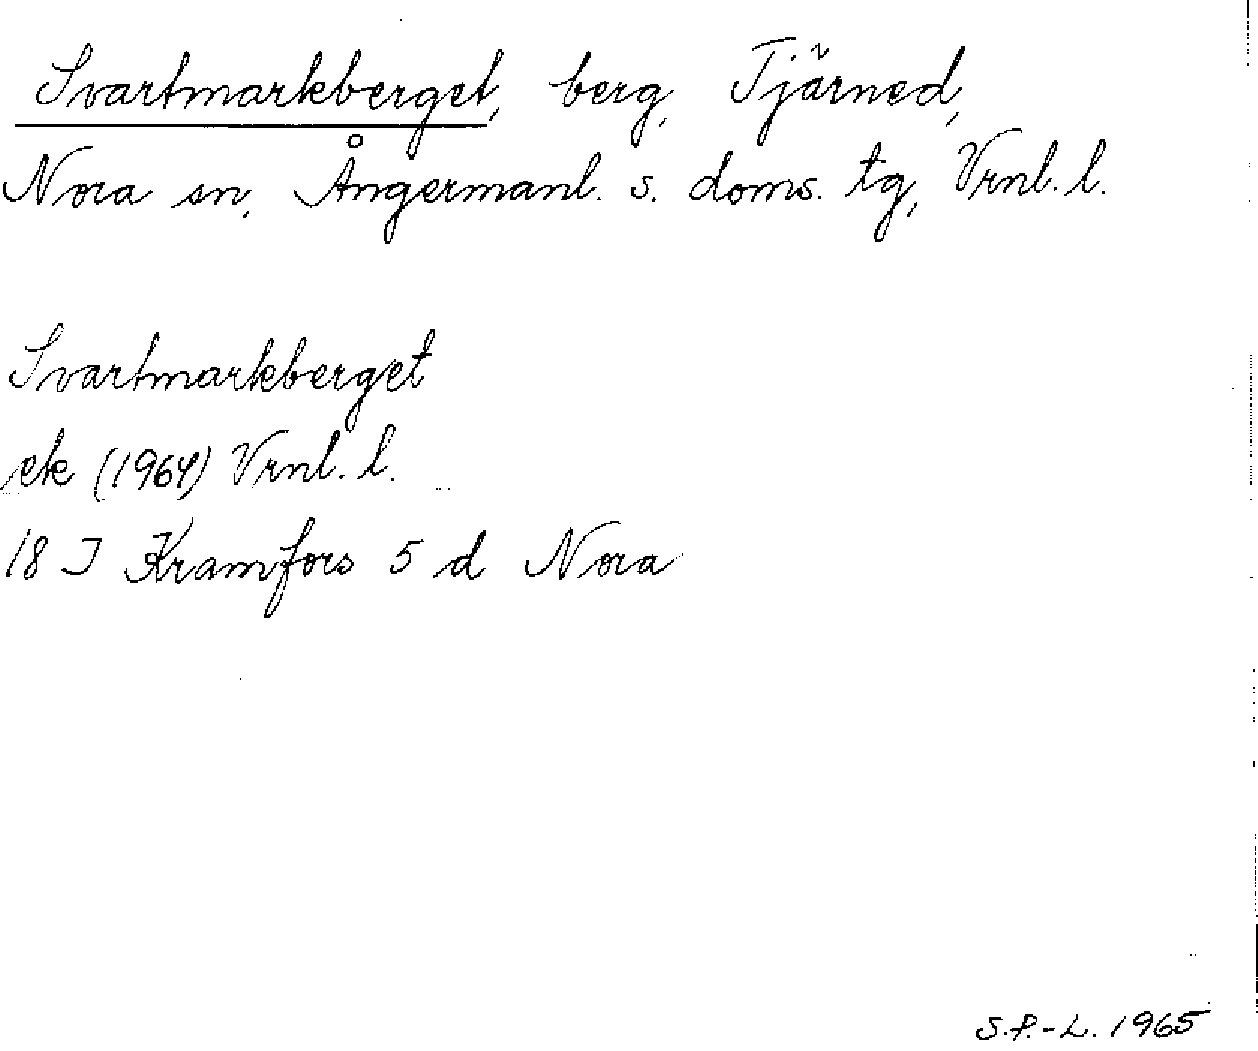 Svartmarkberget, berg, Tjärned,
Nora sn, Ångermanl. s. doms. tg, Vrnl. l.
Svartmarkberget
ek (1964) Vrnl. l.
18 I Kramfors 5 d Nora
S.P.-L. 1965